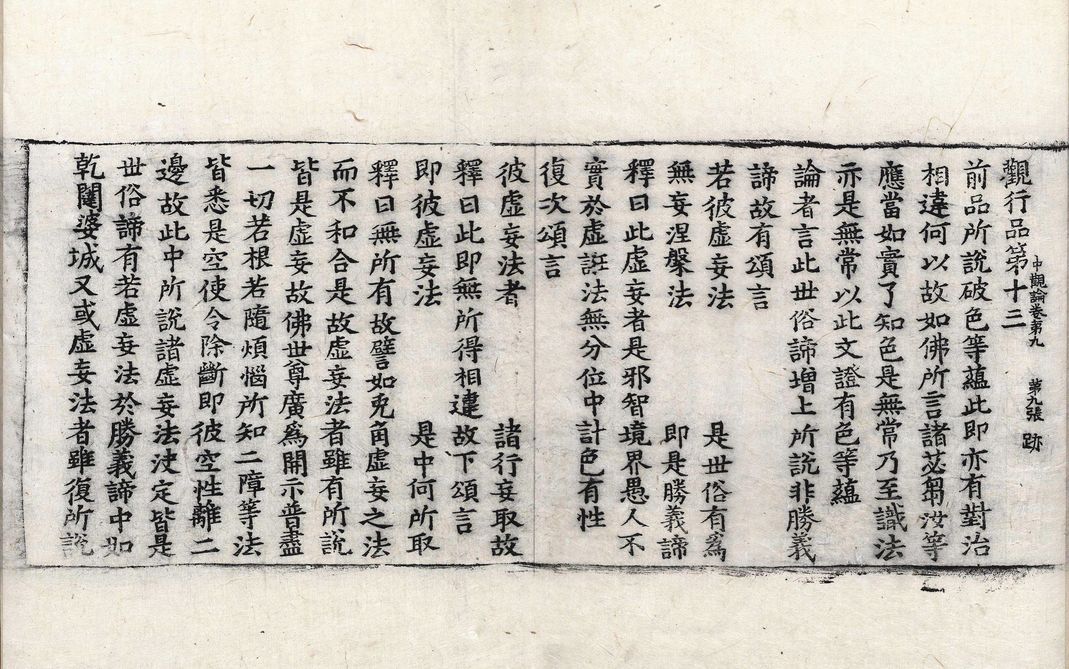 中觀論卷第九　第九張　跡
觀行品第十三
前品所說破色等蘊此即亦有對治
相違何以故如佛所言諸苾芻汝等
應當如實了知色是無常乃至識法
亦是無常以此文證有色等蘊
論者言此世俗諦增上所說非勝義
諦故有頌言
若彼虛妄法　是世俗有爲
無妄涅槃法　即是勝義諦
釋曰此虛妄者是邪智境界愚人不
實於虛誑法無分位中計色有性
復次頌言
彼虛妄法者　諸行妄取故
釋曰此即無所得相違故下頌言
即彼虛妄法　是中何所取
釋曰無所有故譬如兎角虛妄之法
而不和合是故虛妄法者雖有所說
皆是虛妄故佛世尊廣爲開示普盡
一切若根若隨煩惱所知二障等法
皆悉是空使令除斷即彼空性離二
邊故此中所說諸虛妄法決定皆是
世俗諦有若虛妄法於勝義諦中如
乾闥婆城又或虛妄法者雖復所說